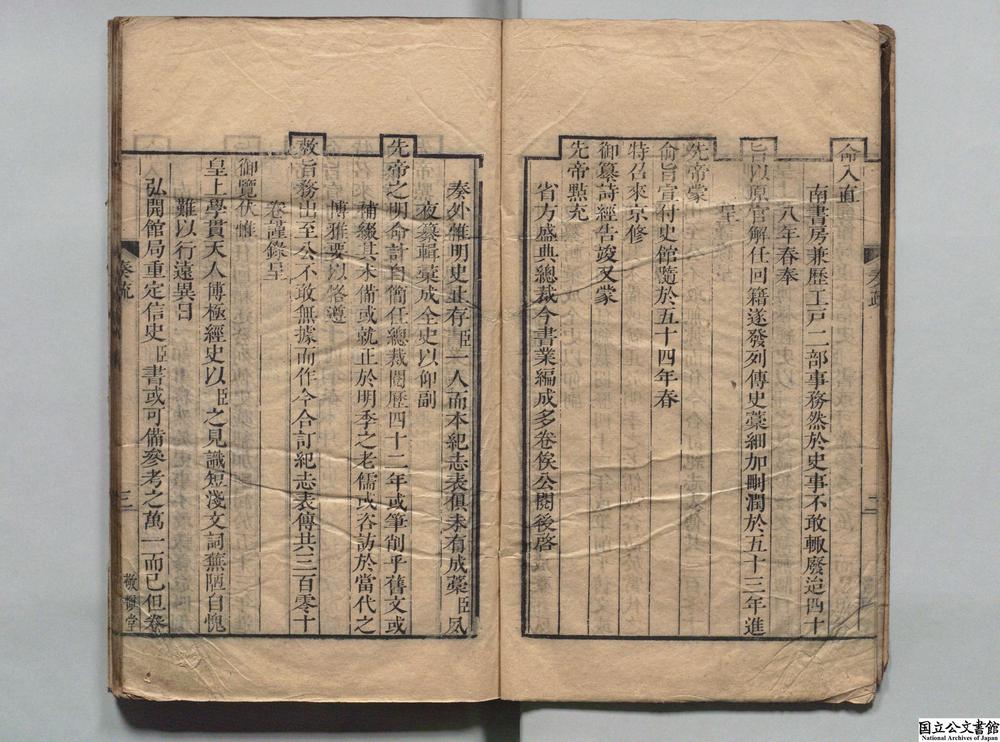 命入直
南書房兼歷工戶二部事務然於史事不敢輙廢迨四十
八年春奉
旨以原官解任回籍遂發列傳史藁細加刪潤於五十三年進
呈
先帝蒙
俞旨宣付史館隨於五十四年春
特召來京修
御纂詩經告竣又蒙
先帝點充
省方盛典總裁今書業編成多卷俟公閱後啓
奏疏
二
奏外惟明史止存臣一人而本紀志表俱未有成藁臣夙
夜纂輯藁成全史以仰副
先帝之明命計自簡任總裁閱歷四十二年或筆削乎舊文或
補綴其未備或就正於明季之老儒或咨訪於當代之
博雅要以恪遵
敕旨務出至公不敢無據而作今合訂紀志表傳共三百零十
卷謹錄呈
御覽伏惟
皇上學貫天人博極經史以臣之見識短淺文詞蕪陋自愧
難以行遠異日
弘開館局重定信史臣書或可備參考之萬一而已但卷
奏疏
三
敬慎堂
国立公文書館
National Archives of Japan